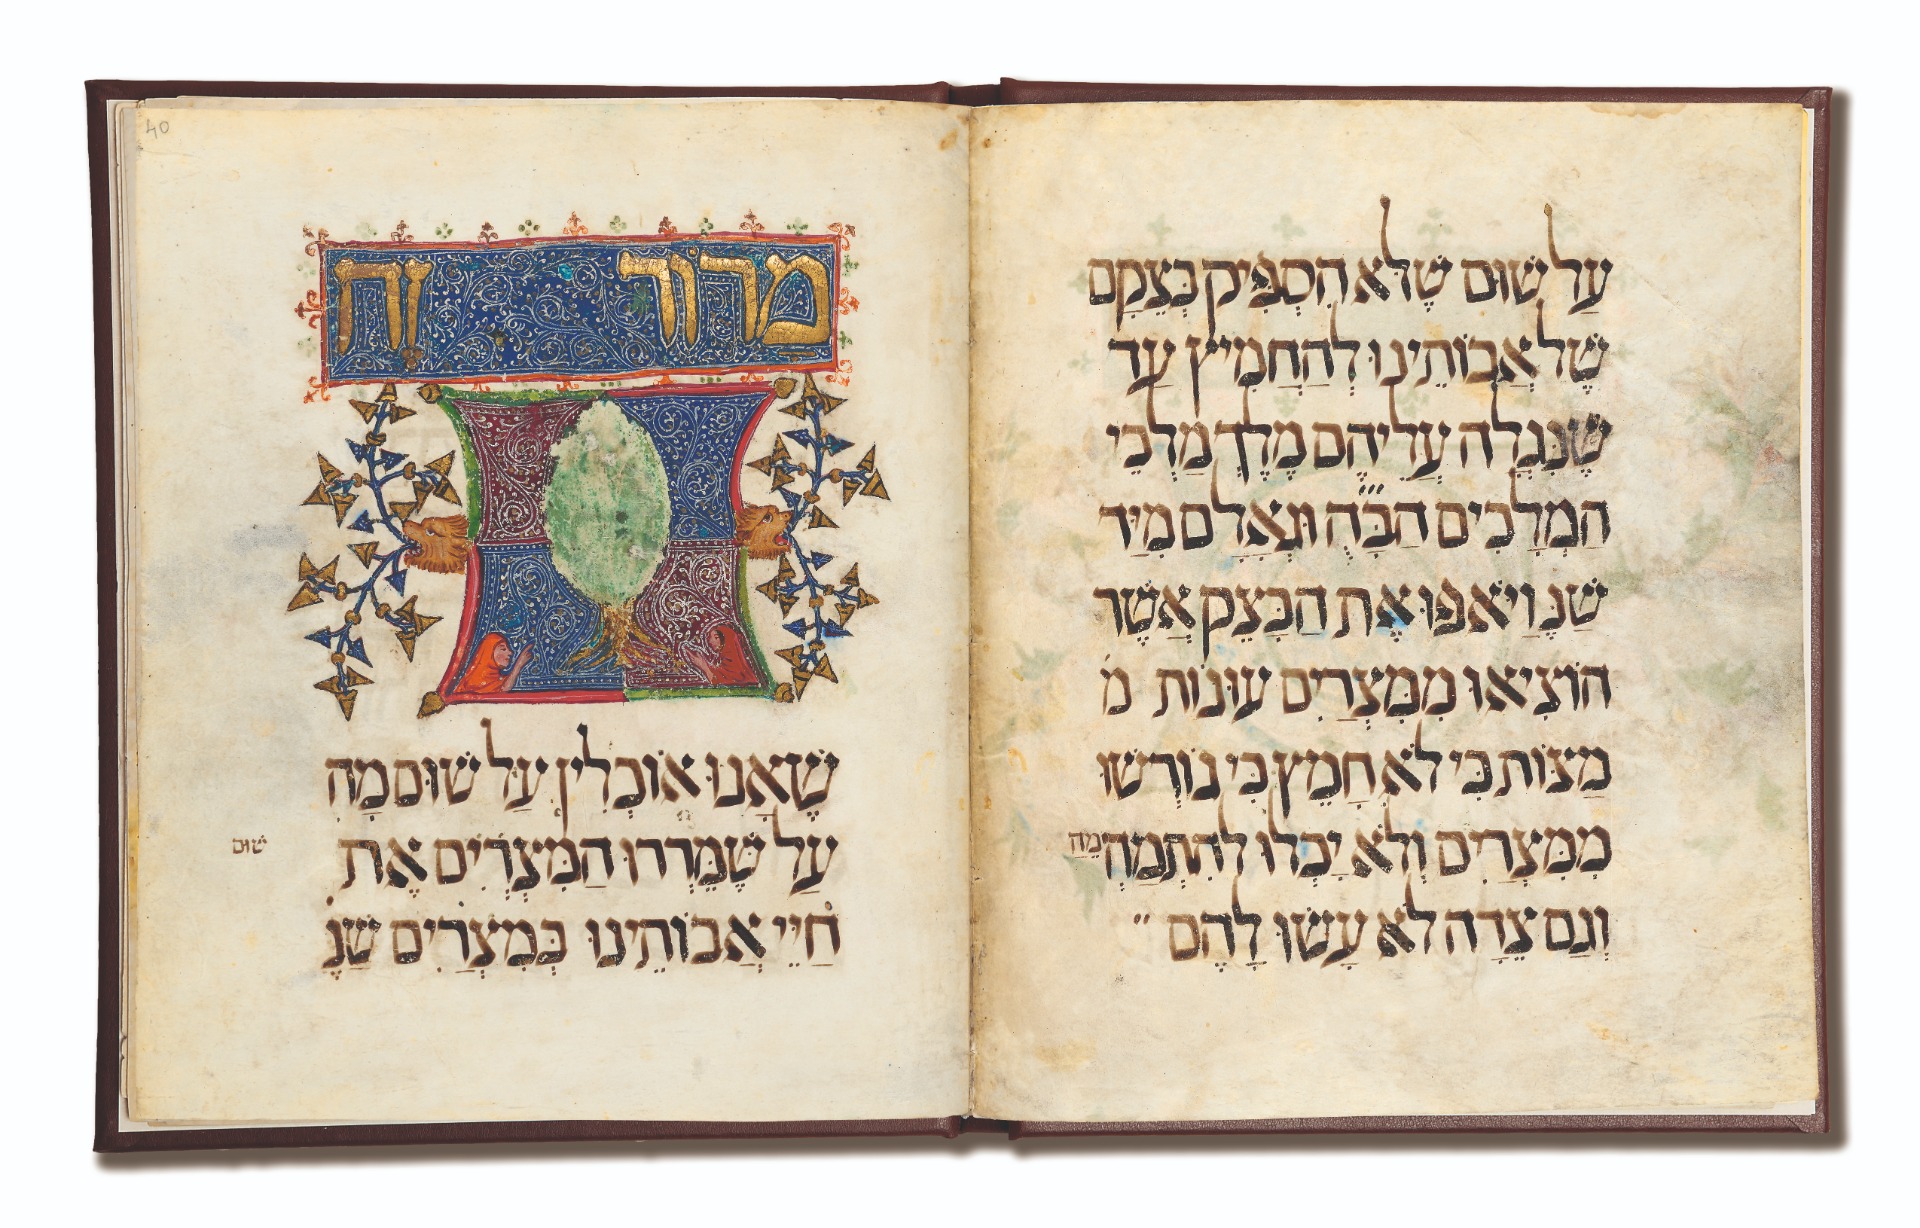 עַל שׁוּם שֶׁלֹּא הִסְפִּיק בְּצֵקָם
שֶׁל אֲבוֹתֵינוּ לְהַחֲמִיץ עַד
שֶׁנִּגְלָה עֲלֵיהֶם מֶלֶךְ מַלְכֵי
הַמְּלָכִים הַבָּה וּגְאָלָם מִיַּד
שֶׁנֶּ וַיֹּאפוּ אֶת הַבָּצֵק אֲשֶׁר
הוֹצִיאוּ מִמִּצְרַיִם עוּגוֹת מ
מַצּוֹת כִּי לֹא חָמֵץ כִּי גוֹרְשׁוּ
מִמִּצְרַיִם וְלֹא יָכְלוּ לְהִתְמַהְמֵהַּ
וְגַם צֵדָה לֹא עָשׂוּ לָהֶם
40
מָרוֹר זֶה
שֶׁאָנוּ אוֹכְלִין עַל שׁוּם מָה
עַל שֶׁמֵּרְרוּ הַמִּצְרִים אֶת
שׁוּם
חַיֵּי אֲבוֹתֵינוּ בְּמִצְרַיִם שֶׁנֶּ